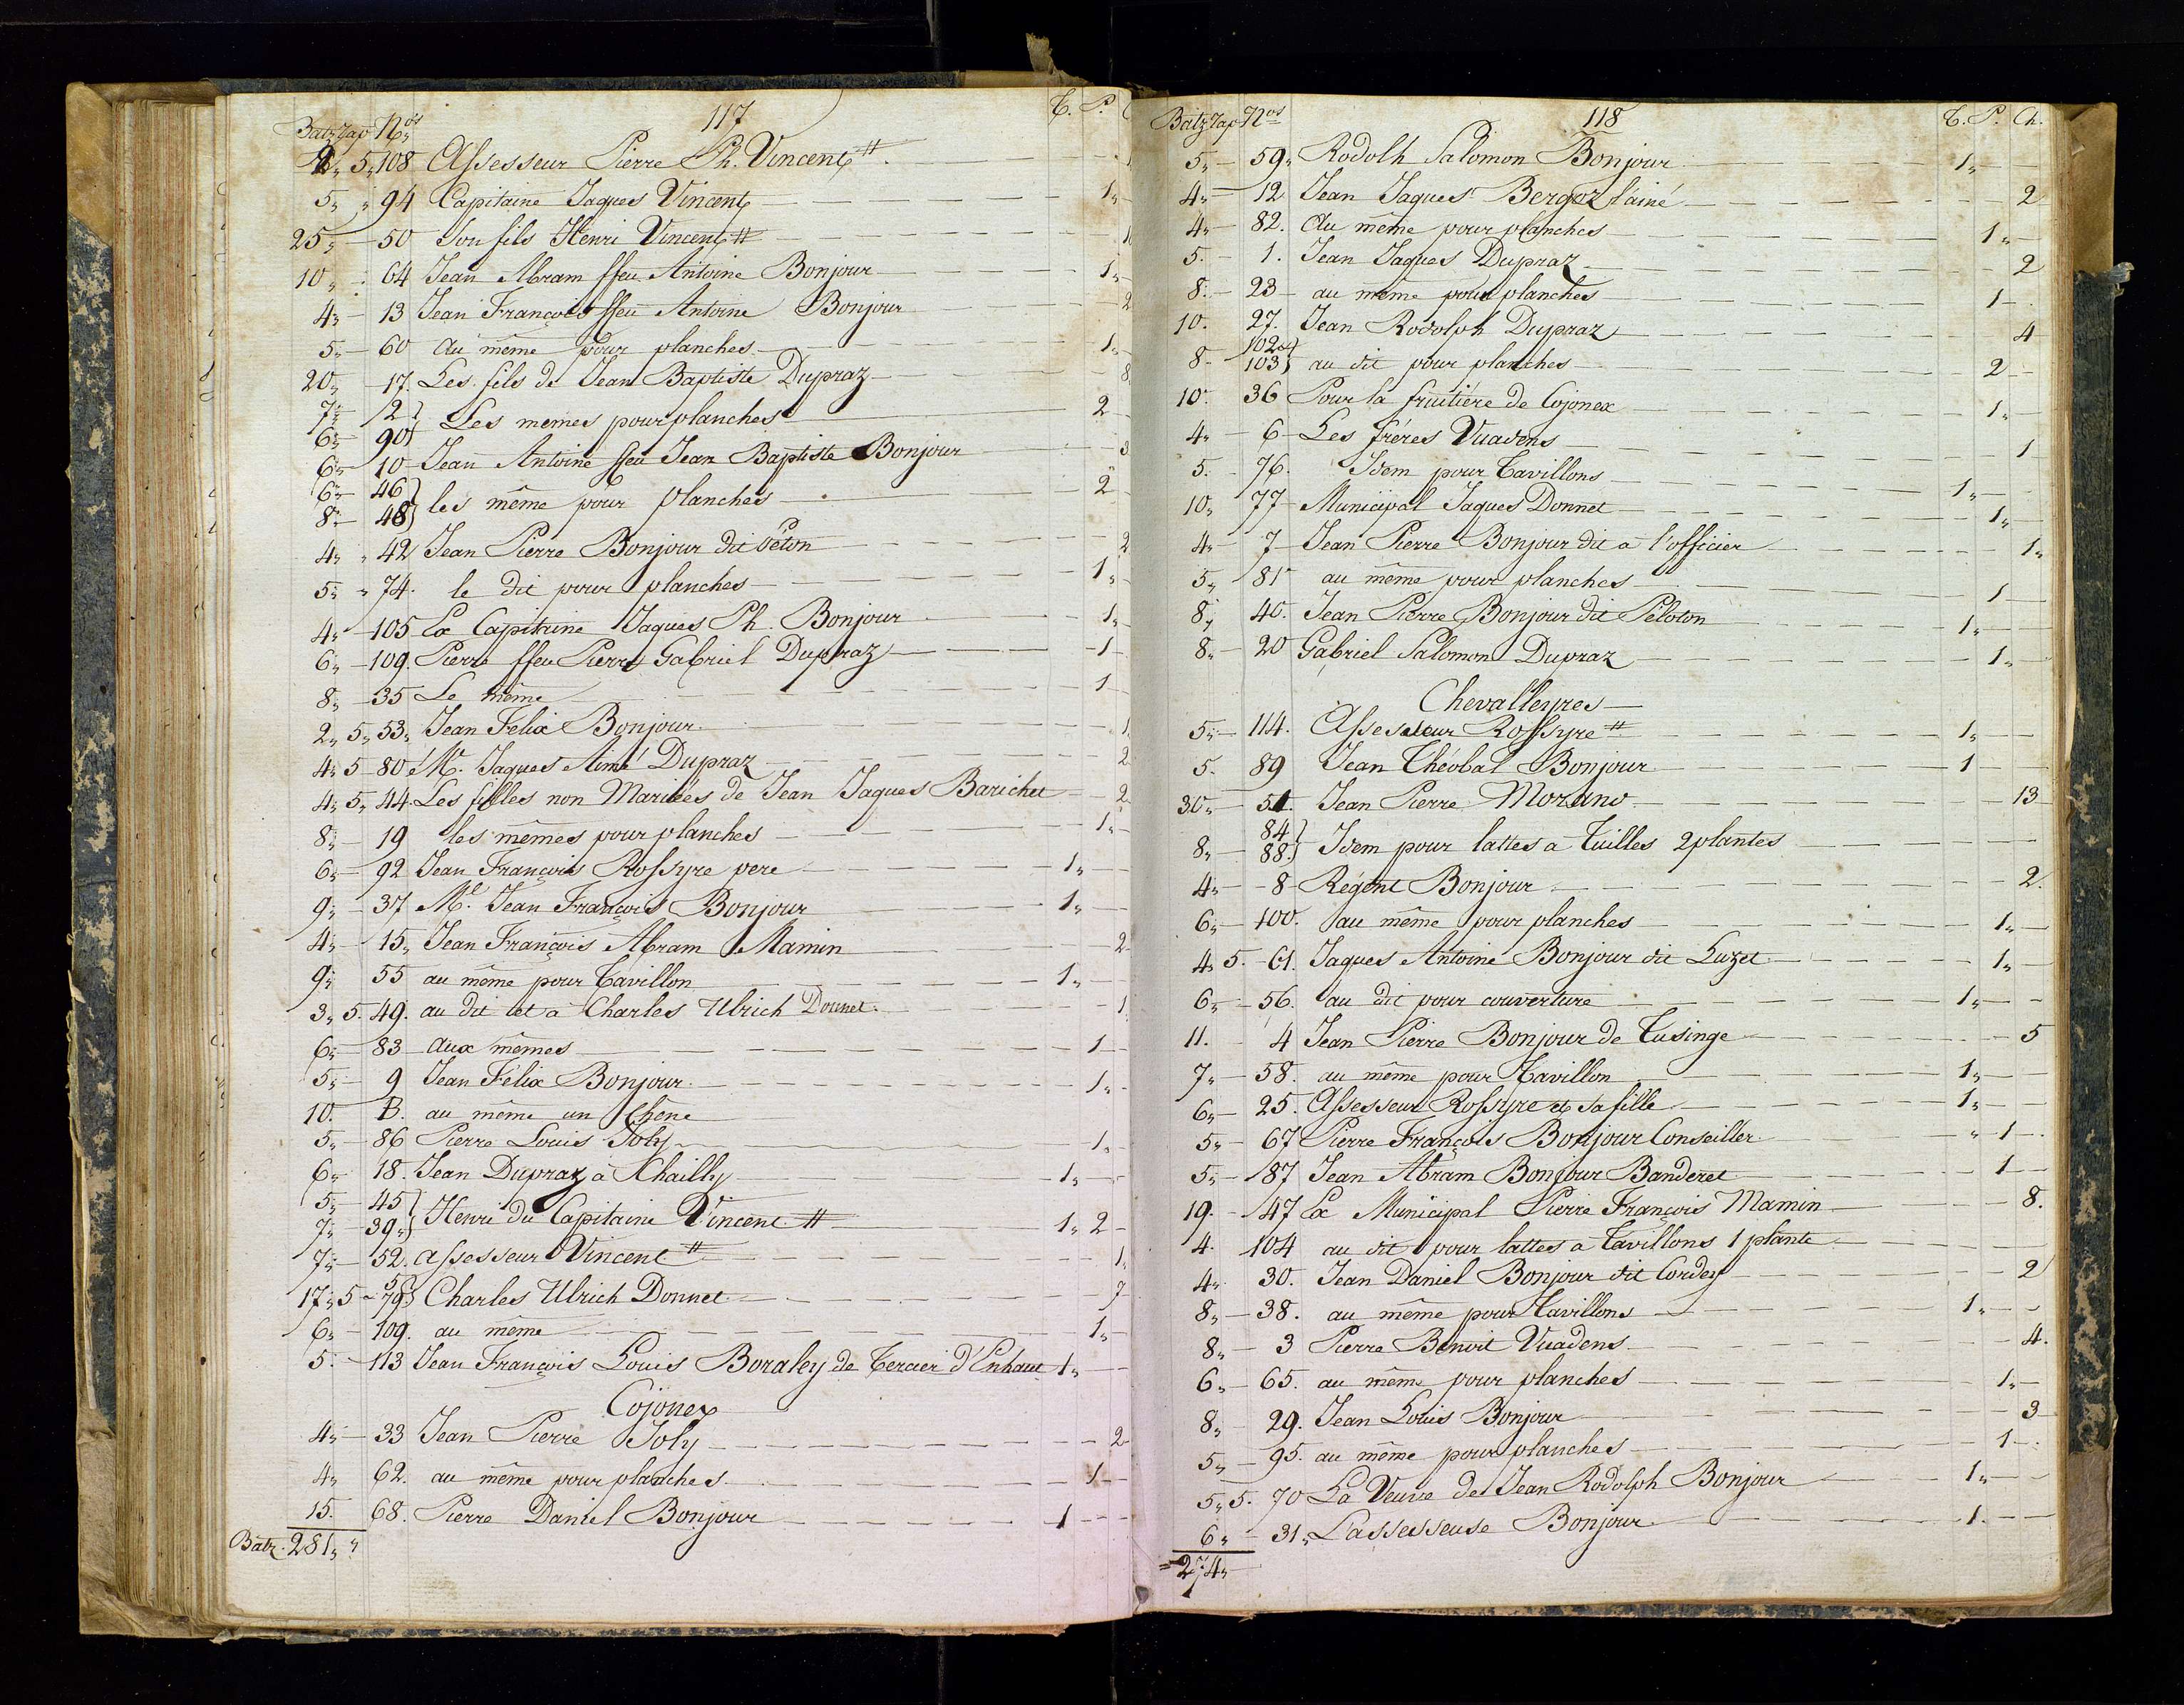 117
Batz Rap Nos T. P.
2„ 5„ 108 Assesseur Pierre Ph. Vincent #
5„ „ 94 Capitaine Jaques Vincent — 1„
25„ — 50 Son fils Henri Vincent # — 1
10„ „ 64 Jean Abram ffeu Antoine Bonjour — 1„
4„ — 13 Jean François ffeu Antoine Bonjour — 2
5„ — 60 Au même pour planches — 1„
20„ — 17. Les fils de Jean Baptiste Dupraz — 8
7„ — 2 }
6„ — 90 } Les memes pour planches — 2
6„ — 10 Jean Antoine ffeu Jean Baptiste Bonjour — 3
6„ — 46 }
8„ — 48 } les même pour planches — 2
4„ „ 42 Jean Pierre Bonjour dit Peton — 2
5„ „ 74. le dit pour planches — 1„
4„ — 105 Le Capitaine Jaques Ph. Bonjour — 1„
6„ — 109. Pierre ffeu Pierre Gabriel Dupraz — 1
8„ — 35 Le même — 1
2„ 5„ 53„ Jean Felix Bonjour — 1
4„ 5 80 Mr. Jaques Aimé Dupraz — 2
4„ 5„ 44. Les filles non Mariées de Jean Jaques Barichet — 2
8„ — 19 les mêmes pour planches — 1„
6„ — 92 Jean François Rossyre pere — 1„
9„ — 37 Me. Jean François Bonjour — 1„
4„ — 15„ Jean François Abram Mamin — 2
9„ 55 au même pour Tavillon — 1„
3„ 5. 49. au dit et à Charles Ulrich Donnet — 1
6„ — 83 aux mêmes — 1
5„ — 9 Jean Félix Bonjour — 1„
10. B. au même un Chêne
5„ — 86 Pierre Louis Joly — 1„
6„ 18. Jean Dupraz à Chailly — 1„
5„ — 45 }
7„ — 39„ } Henri du Capitaine Vincent # — 1„ 2
7„ — 52. assesseur Vincent # — 1„
17„ 5 — 5 }
79 } Charles Ulrich Donnet — 7
6„ — 109. au même — 1„
5. — 113 Jean François Louis Boraley de Tercier d'Enhaut 1„
Cojonex
4„ — 33 Jean Pierre Joly — 2
4„ 62. au même pour planches — 1
15. 68. Pierre Daniel Bonjour — 1
Batz. 281„ „
118
Batz Rap Nos T. P. Ch.
5„ — 59„ Rodolh Salomon Bonjour — 1„
4„ — 12 Jean Jaques Bergoz l'ainé — 2
4„ — 82. Au même pour planches — 1„
5. — 1. Jean Jaques Dupraz — 2
8. — 23 — au même pour planches — 1
10. 27. Jean Rodolph Dupraz — 4
102 }
8 — 103 } au dit pour planches — 2
10. 36 Pour la fruitière de Cojonex — 1„
4„ — 6 — Les frères Vuadens — 1
5. — 76. Idem pour Tavillons — 1„
10„ 77 — Municipal Jaques Donnet — 1„
4„ — 7 — Jean Pierre Bonjour dit a l'officier — 1„
5„ 81 au même pour planches — 1
8„ 40. Jean Pierre Bonjour dit Péloton — 1„
8„ — 20 Gabriel Salomon Dupraz — 1„
Chevalleyres —
5„ — 114. Assesseur Rossyre # — 1„
5. 89 Jean Théobal Bonjour — 1
30„ — 51. Jean Pierre Morand — 13
84 }
8„ — 88. } Idem pour lattes a Tuilles 2 plantes
4„ — 8 — Régent Bonjour — 2.
6„ — 100. au même pour planches — 1„
4„ 5. — 61. Jaques Antoine Bonjour dit Luzet — 1„
6„ — 56. au dit pour couverture — 1„
11. — 4 Jean Pierre Bonjour de Tusinge — 5
7„ — 58. au même pour Tavillon — 1„
6„ — 25. Assesseur Rossyre et sa fille — 1„
5„ — 67 Pierre François Bonjour Conseiller — „ 1
5„ — 87 Jean Abram Bonjour Banderet — 1
19. — 47 Le Municipal Pierre François Mamin — 8.
4. 104 au dit pour lattes a Tavillons 1 plante
4„ 30. Jean Daniel Bonjour dit Cordey — 2
8„ — 38. au même pour Tavillons — 1„
8„ — 3 Pierre Benoit Vuadens — 4.
6„ — 65. au même pour planches — 1„
8„ — 29. Jean Louis Bonjour — 3
5„ — 95. au même pour planches — 1
5„ 5. 70 La Veuve de Jean Rodolph Bonjour — 1„
6„ — 31„ Lassesseuse Bonjour — 1
= 274„